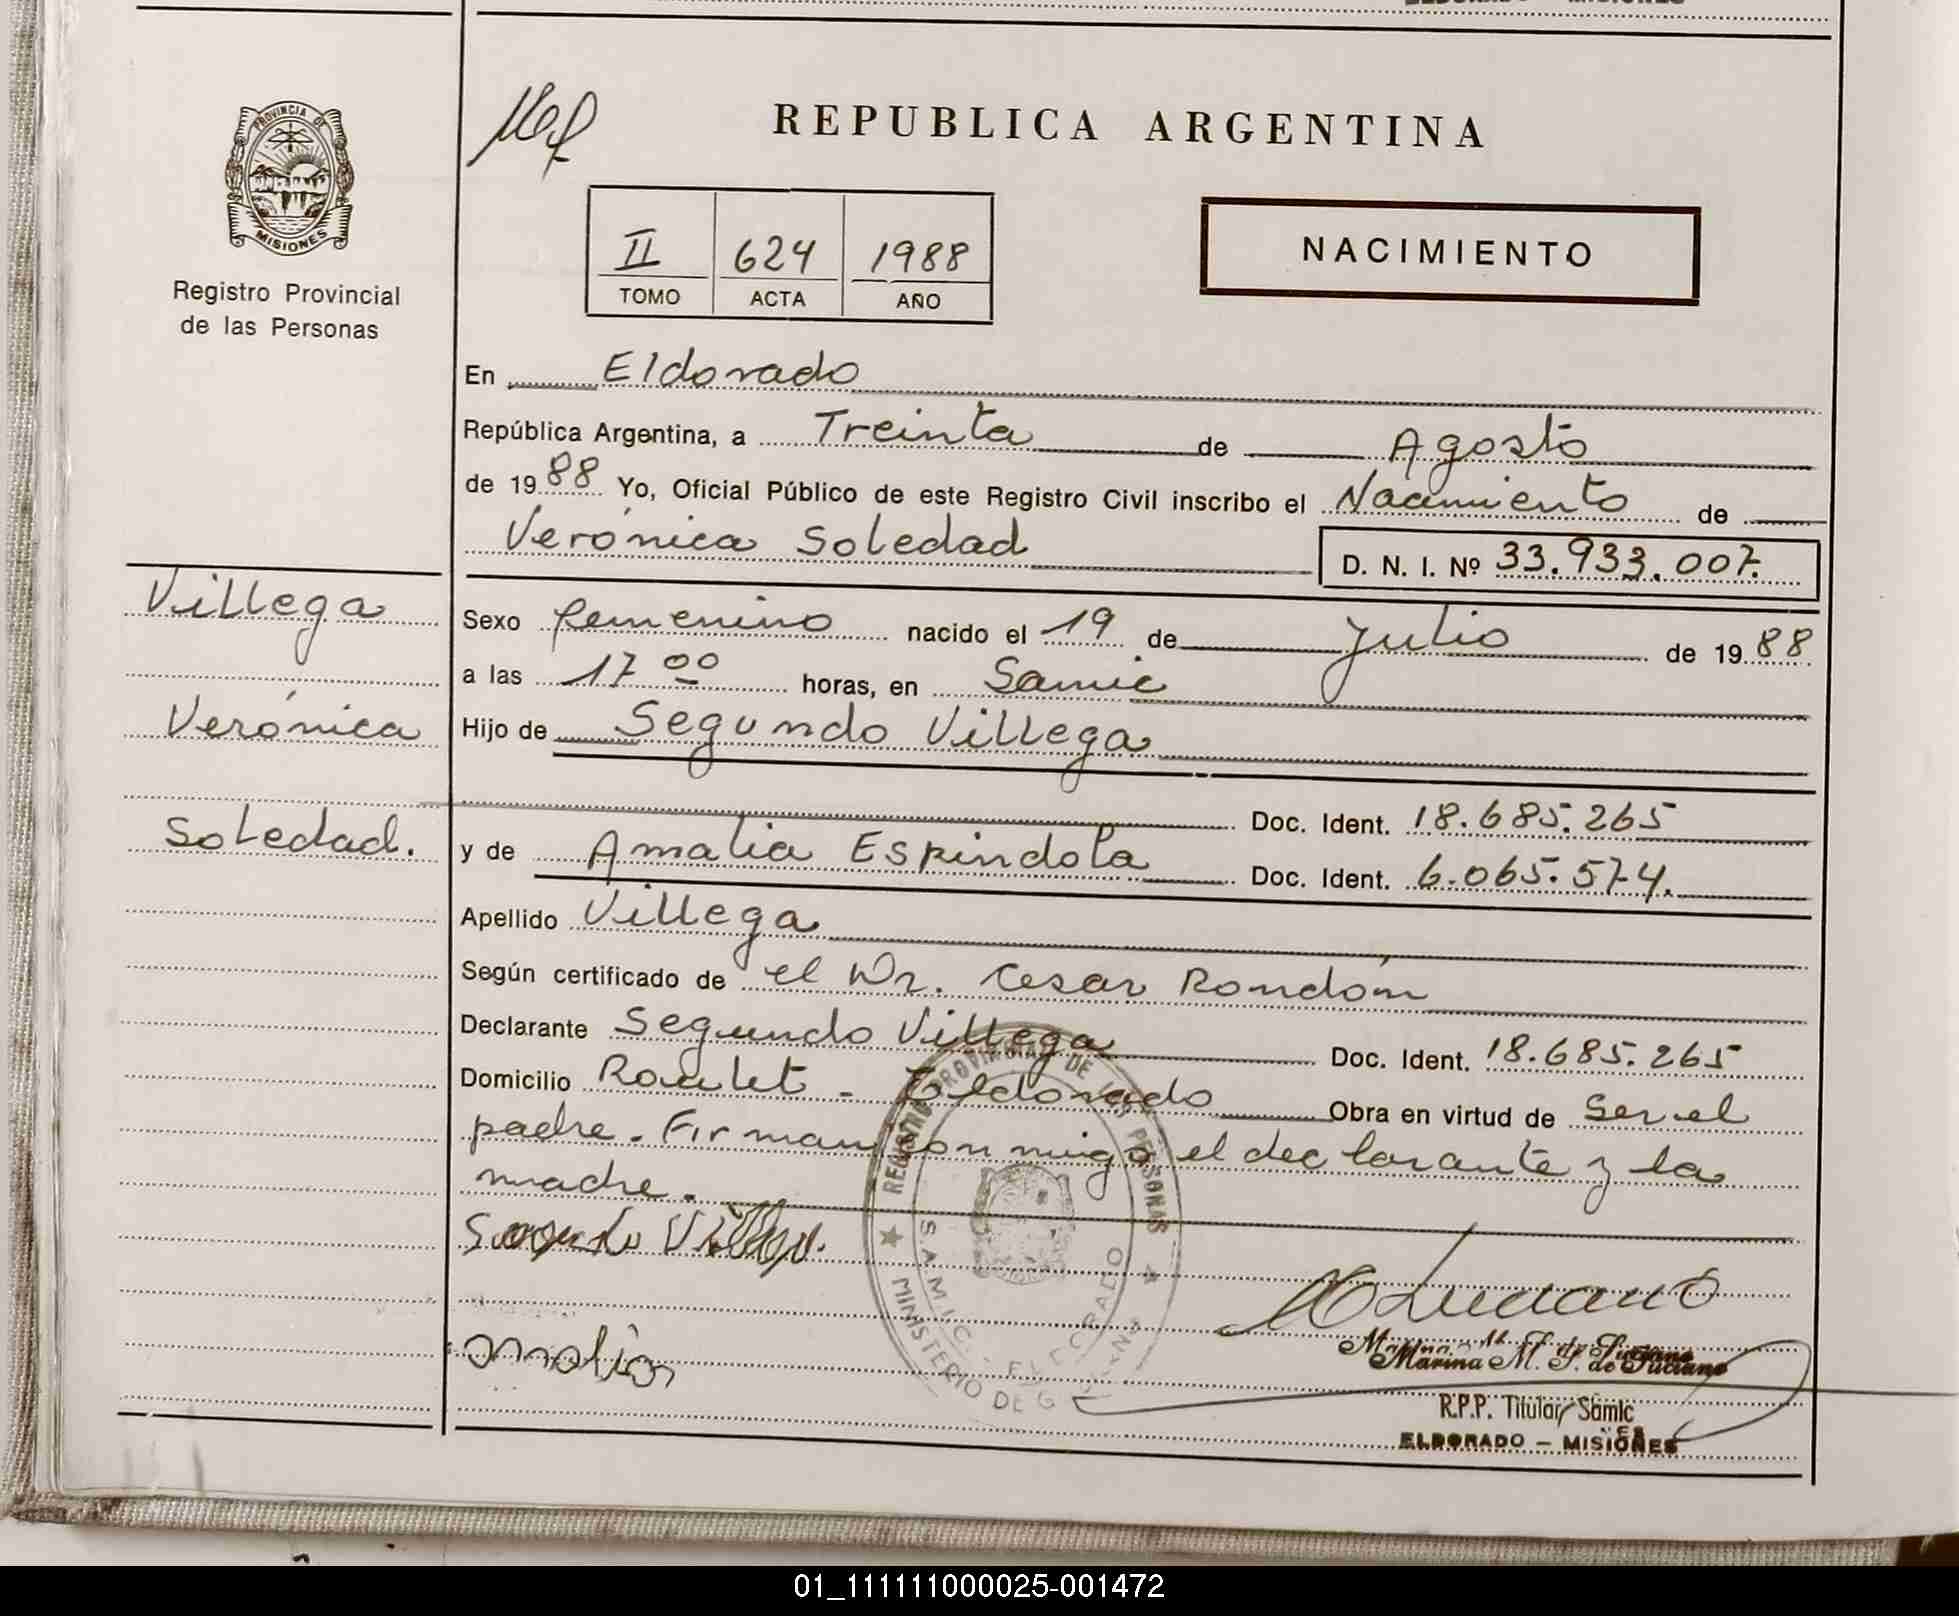 PROVINCIA DE
MISIONES
Registro Provincial
de las Personas
REPUBLICA ARGENTINA
II 624 1988
TOMO ACTA AÑO
NACIMIENTO
En Eldorado
República Argentina, a Treinta de Agosto
de 1988 Yo, Oficial Público de este Registro Civil inscribo el Nacimiento de
Verónica Soledad D. N. I. Nº 33.933.007.
Villega
Verónica
Soledad.
Sexo femenino nacido el 19 de Julio de 1988
a las 17 00 horas, en Samic
Hijo de Segundo Villega
Doc. Ident. 18.685.265
y de Amalia Espindola Doc. Ident. 6.065.574.
Apellido Villega
Según certificado de el Dr. Cesar Rondón
Declarante Segundo Villega Doc. Ident. 18.685.265
Domicilio Roulet - Eldorado Obra en virtud de Ser el
padre. Firman conmigo el declarante y la
madre.
Segundo Villega.
REGISTRO PROVINCIAL DE LAS PERSONAS
S.A.M.I.C. - ELDORADO
MINISTERIO DE G
Luciano
amalia
Marina M. F. de Luciano
R.P.P. Titular Samic
ELDORADO - MISIONES
01_111111000025-001472